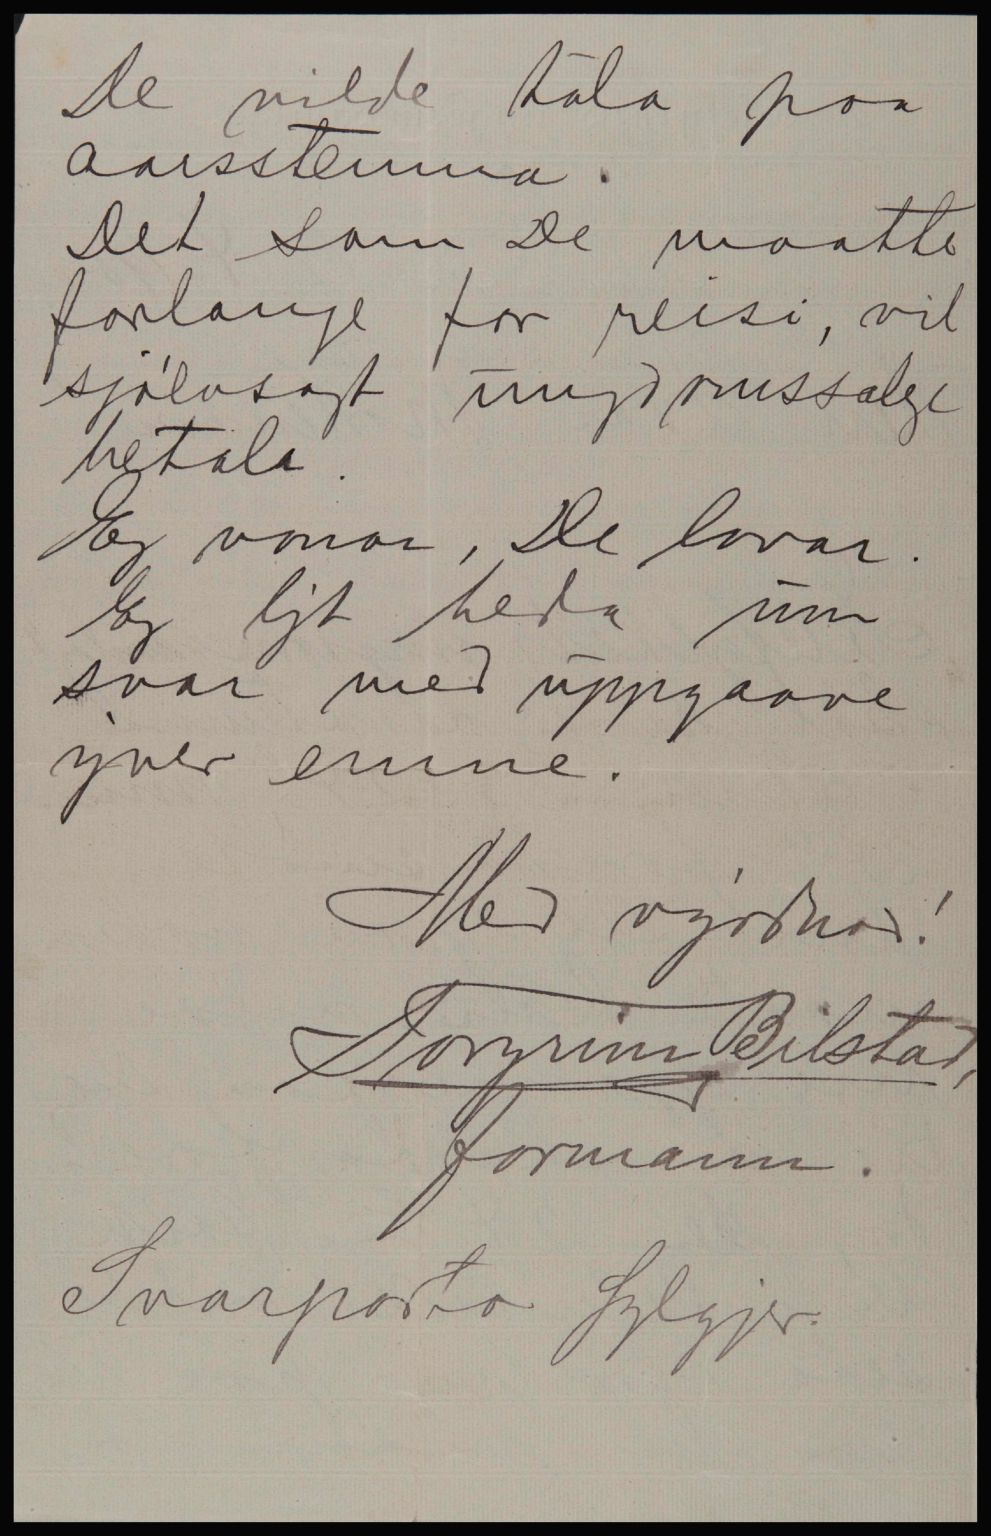 De vilde tala paa
aarsstemna.
Det som De maatte
forlange for reisi, vil
sjølvsagt ungdomssalge
betala.
Eg vonar, De lovar.
Eg lyt beda um
svar med uppgaave
yver emne.
Med vyrdnad!
Torgrim Bilstad,
formann.
Svarporto fylgjer.